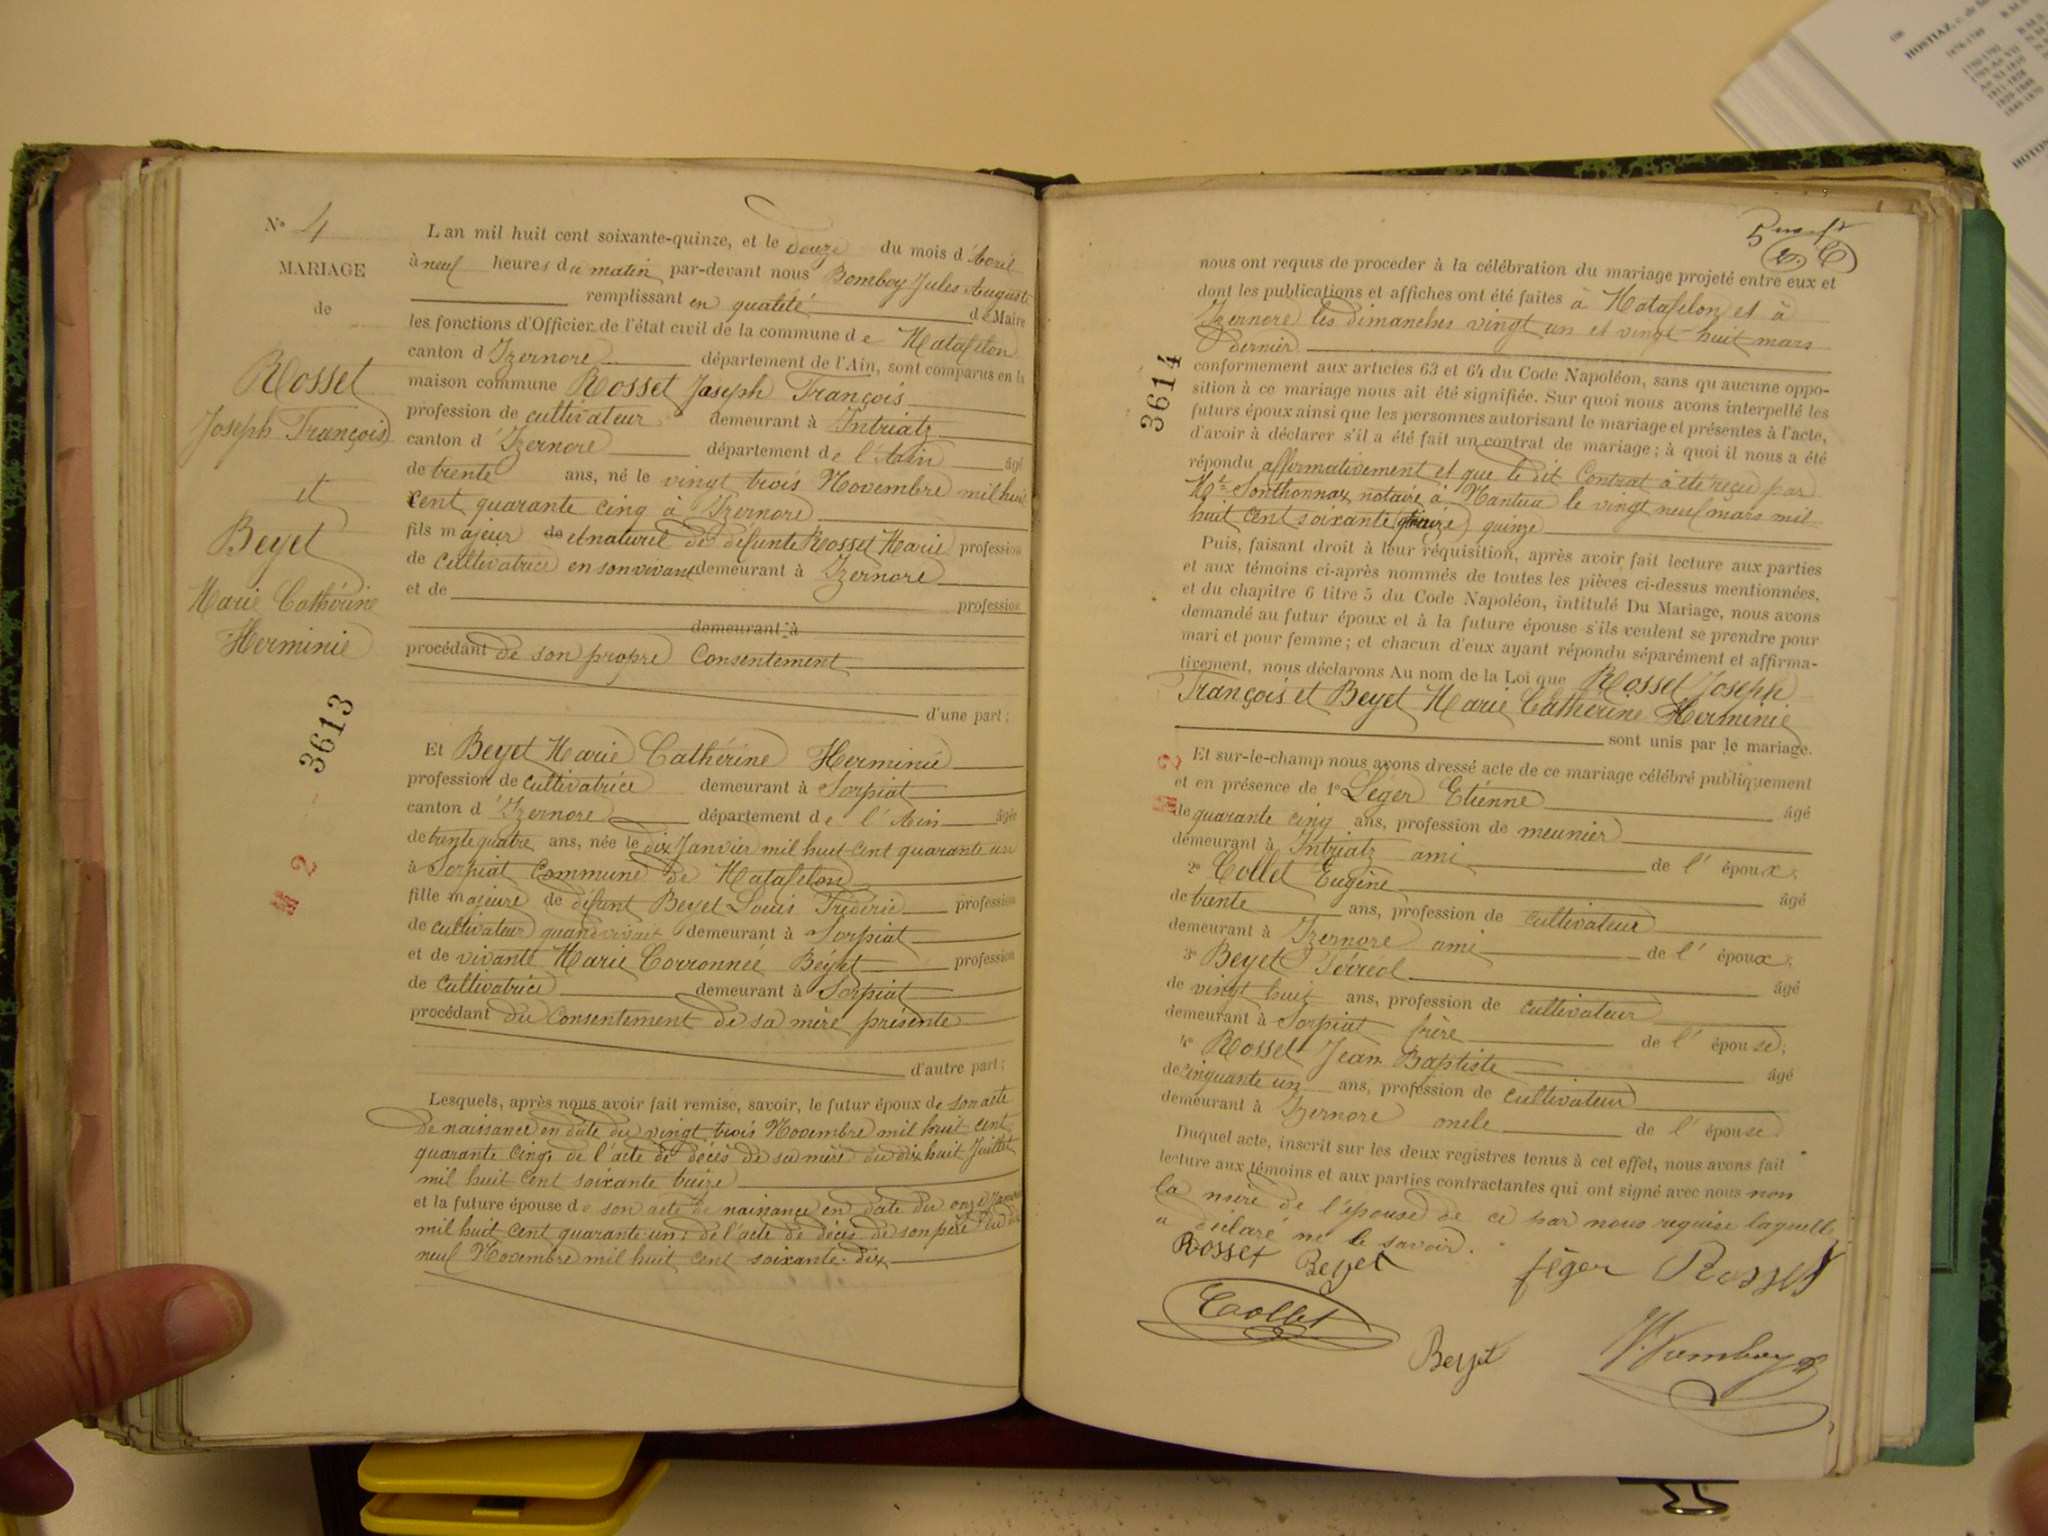 N° 4
MARIAGE
de
Rosset
Joseph François
et
Beyet
Marie Cathérine
Herminie
3613
M 2
L an mil huit cent soixante-quinze, et le douze du mois d'Avril
à neuf heures du matin par-devant nous Bomboy Jules Auguste
remplissant en qualité de Maire
les fonctions d'Officier de l'état civil de la commune de Matafelon
canton d'Izernore département de l'Ain, sont comparus en la
maison commune Rosset Joseph François
profession de cultivateur demeurant à Intriatz
canton d'Izernore département de l'Ain âgé
de trente ans, né le vingt trois Novembre mil huit
cent quarante cinq à Izernore
fils majeur de et naturel de défunte Rosset Marie profession
de cultivatrice en son vivant demeurant à Izernore
et de profession
demeurant à
procédant de son propre Consentement
d'une part;
Et Beyet Marie Cathérine Herminie
profession de cultivatrice demeurant à Sorpiat
canton d'Izernore département de l'Ain âgée
de trente quatre ans, née le dix Janvier mil huit cent quarante un
à Sorpiat Commune de Matafelon
fille majeure de défunt Beyet Louis Fréderic profession
de cultivateur quand vivait demeurant à Sorpiat
et de vivante Marie Corronnée Béyet profession
de Cultivatrice demeurant à Sorpiat
procédant du Consentement de sa mère présente
d'autre part;
Lesquels, après nous avoir fait remise, savoir, le futur époux de son acte
de naissance en date du vingt trois Novembre mil huit cent
quarante cinq, de l'acte de décès de sa mère du dix huit Juillet
mil huit cent soixante treize
et la future épouse de son acte de naissance en date du onze Janvier
mil huit cent quarante un, de l'acte de décès de son père du dix
neuf Novembre mil huit cent soixante-dix
3614
M 2
nous ont requis de proceder à la célébration du mariage projeté entre eux et
dont les publications et affiches ont été faites à Matafelon et à
Izernore les dimanches vingt un et vingt huit mars
dernier
conformement aux articles 63 et 64 du Code Napoléon, sans qu aucune oppo-
sition à ce mariage nous ait été signifiée. Sur quoi nous avons interpellé les
futurs époux ainsi que les personnes autorisant le mariage et présentes à l'acte,
d'avoir à déclarer s'il a été fait un contrat de mariage; à quoi il nous a été
répondu affirmativement et que le dit Contrat à été reçu par
Mt. Sonthonnax notaire à Nantua le vingt neuf mars mil
huit cent soixante quinze
Puis, faisant droit à leur réquisition, après avoir fait lecture aux parties
et aux témoins ci-après nommés de toutes les pièces ci-dessus mentionnées,
et du chapitre 6 titre 5 du Code Napoléon, intitulé Du Mariage, nous avons
demandé au futur époux et à la future épouse s'ils veulent se prendre pour
mari et pour femme; et chacun d'eux ayant répondu séparément et affirma-
tivement, nous déclarons Au nom de la Loi que Rosset Joseph
François et Beyet Marie Catherine Herminie
sont unis par le mariage.
Et sur-le-champ nous avons dressé acte de ce mariage célébré publiquement
et en présence de 1° Léger Etiénne âgé
de quarante cinq ans, profession de meunier
demeurant à Intriatz ami de l'époux;
2° Collet Eugène âgé
de trente ans, profession de cultivateur
demeurant à Izernore ami de l'époux;
3° Beyet Férréol âgé
de vingt huit ans, profession de cultivateur
demeurant à Sorpiat frère de l'épouse;
4° Rosset Jean Baptiste âgé
de cinquante un ans, profession de cultivateur
demeurant à Izernore oncle de l'épouse
Duquel acte, inscrit sur les deux registres tenus à cet effet, nous avons fait
lecture aux témoins et aux parties contractantes qui ont signé avec nous non
la mère de l'épouse de ce par nous requise laquelle
a déclaré ne le savoir.
Rosset Beyet féger Rosset
Collet
Beyet
Bomboy
HOSTIAZ, c. de